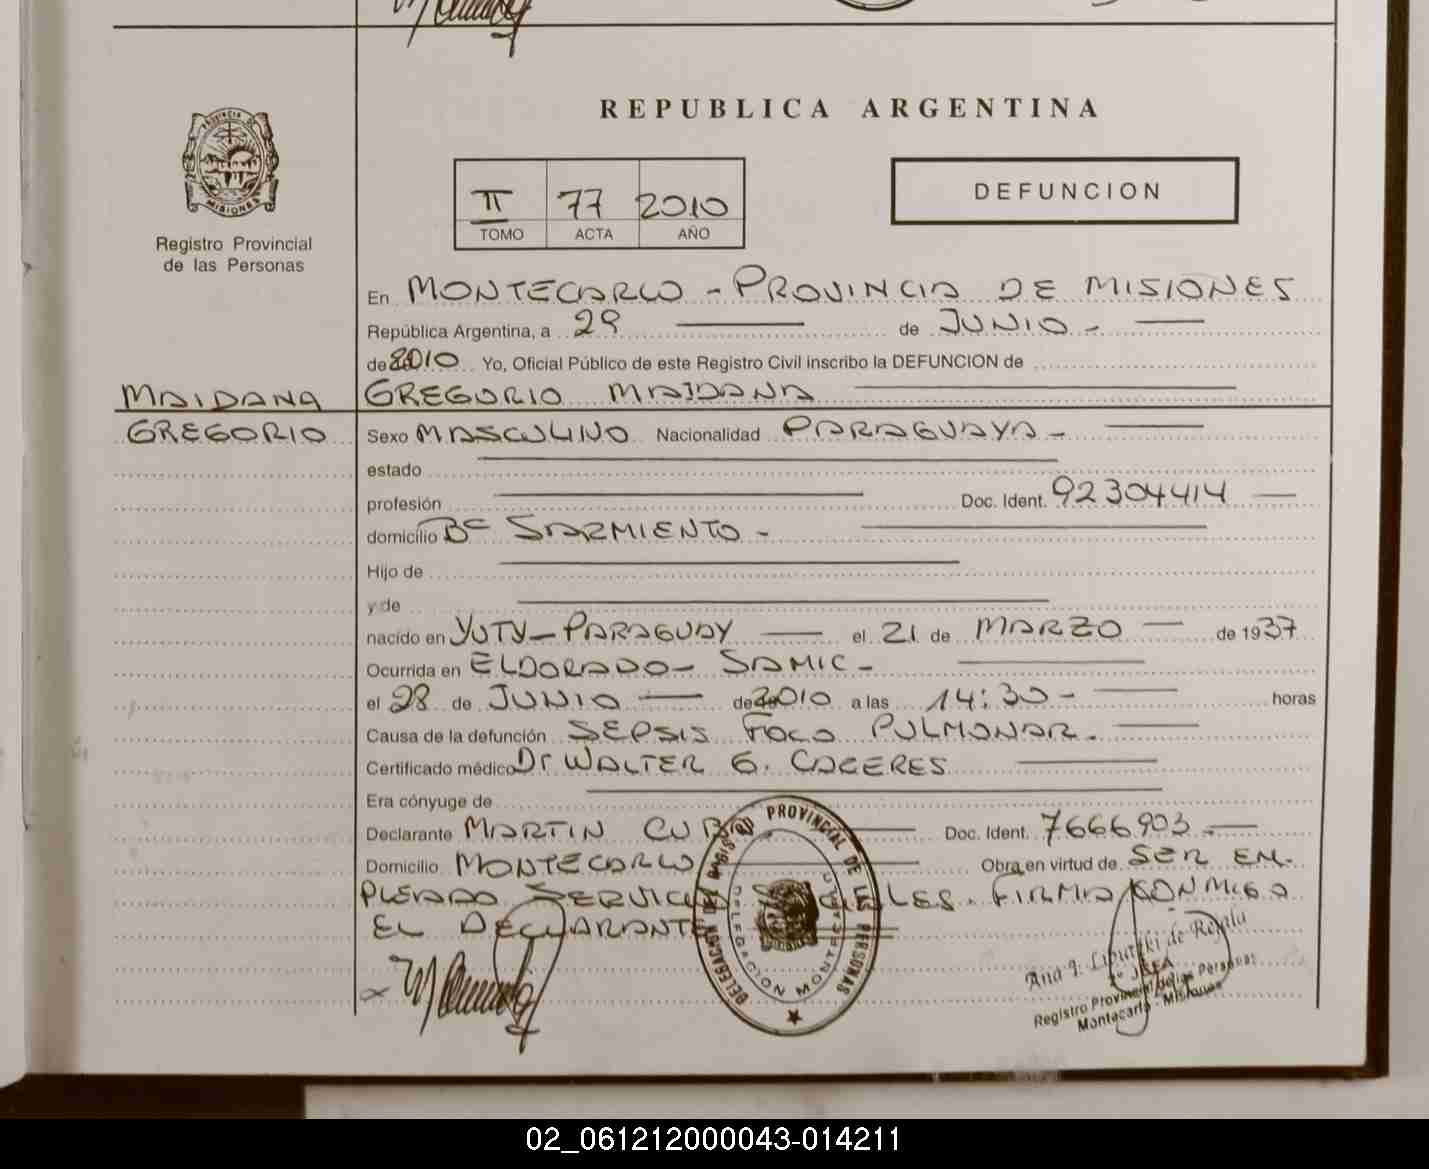 REPUBLICA ARGENTINA
PROVINCIA DE
MISIONES
Registro Provincial
de las Personas
II 77 2010
TOMO ACTA AÑO
DEFUNCION
En MONTECARLO - PROVINCIA DE MISIONES
República Argentina, a 29 de JUNIO -
de 2010 Yo, Oficial Público de este Registro Civil inscribo la DEFUNCION de
MAIDANA GREGORIO MAIDANA
GREGORIO Sexo MASCULINO Nacionalidad PARAGUAYA -
estado
profesión Doc. Ident. 92304414
domicilio Bº SARMIENTO -
Hijo de
y de
nacido en YUTY - PARAGUAY el 21 de MARZO de 1937
Ocurrida en ELDORADO - SAMIC -
el 28 de JUNIO de 2010 a las 14:30 - horas
Causa de la defunción SEPSIS FOCO PULMONAR.
Certificado médico Dr WALTER G. CACERES
Era cónyuge de
Declarante MARTIN Doc. Ident. 7666903
Domicilio MONTECARLO Obra en virtud de SER EM-
PLEADO FIRMA CONMIGO
EL DECLARANTE
DELEGACION DEL REGISTRO PROVINCIAL DE LAS PERSONAS
DELEGACION MONTECARLO
Ana I. de
JEFA
Registro Provincial de las Personas
Montecarlo - Misiones
02_061212000043-014211